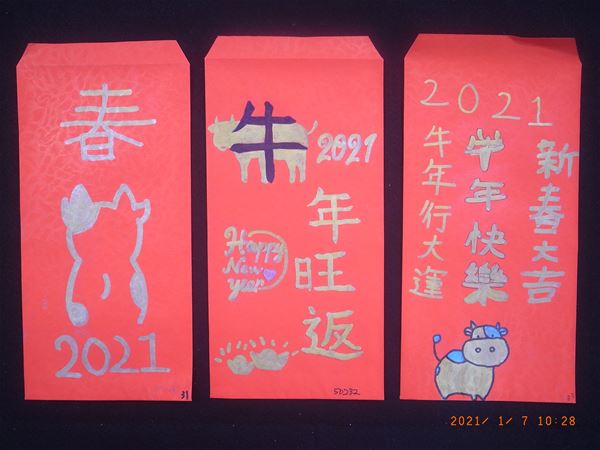 春
2021
31
牛
2021
年旺返
Happy
New
year
2021
新春大吉
牛年快樂
牛年行大運
2021/ 1/ 7 10:28